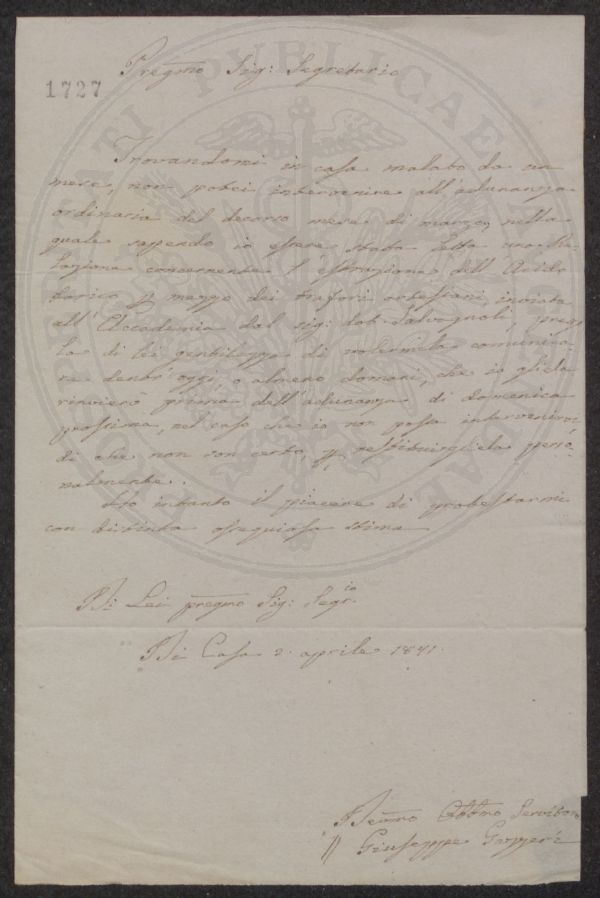 Pregmo Sig: Segretario
1727
Trovandomi in casa malato da un
mese, non potei intervenire all'adunanza
ordinaria del decorso mese di marzo, nella
quale sapendo io essere stata letta una Re-
lazione concernente l'estrazione dell'Acido
borico p mezzo dei trafori artesiani, inviata
all'Accademia dal sig: dot. Salvagnoli, prego
la di lei gentilezza di volermela comunica
re denº oggi, o almeno domani, che io gliela
rinvierò prima dell'adunanza di domenica
prossima, nel caso che io non possa intervenirvi
di che non son certo, p restituirgliela perso
nalmente.
Ho intanto il piacere di protestarmi
con distinta ossequiosa stima
Di Lei pregmo Sig: Segrio
Di Casa 2. aprile 1841.
Devmo Obbmo Servitore
Giuseppe Gazzeri
PROSPERITATI PUBLICAE AUGENDAE